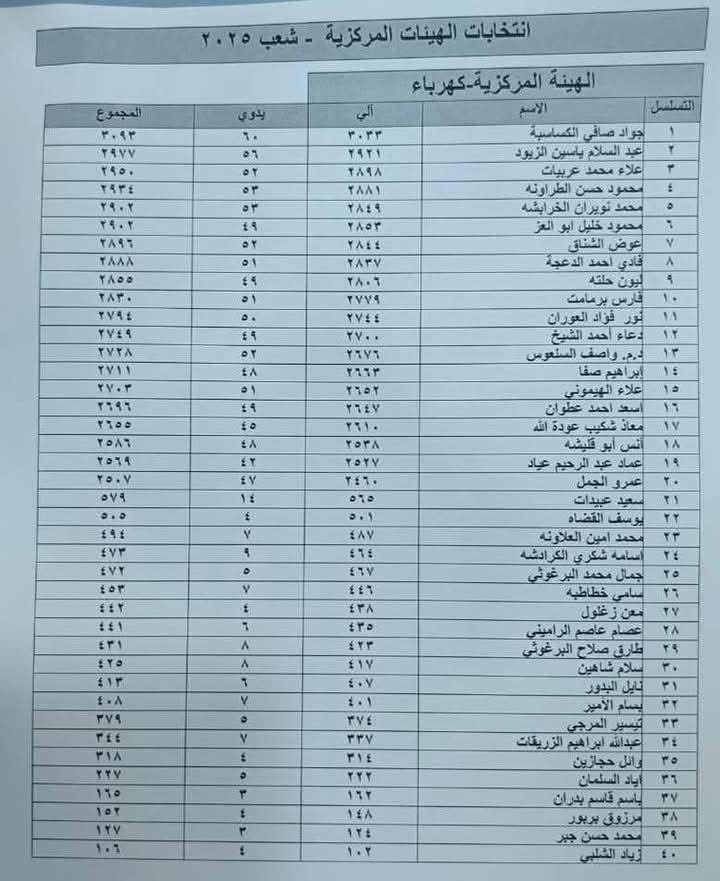 انتخابات الهيئات المركزية - شعب ٢٠٢٥
الهيئة المركزية-كهرباء
التسلسل الاسم آلي يدوي المجموع
١ جواد صافي الكساسبة ٣٠٣٣ ٦٠ ٣٠٩٣
٢ عبد السلام ياسين الزيود ٢٩٢١ ٥٦ ٢٩٧٧
٣ علاء محمد عربيات ٢٨٩٨ ٥٢ ٢٩٥٠
٤ محمود حسن الطراونه ٢٨٨١ ٥٣ ٢٩٣٤
٥ محمد نويران الخرابشه ٢٨٤٩ ٥٣ ٢٩٠٢
٦ محمود خليل ابو العز ٢٨٥٣ ٤٩ ٢٩٠٢
٧ عوض الشناق ٢٨٤٤ ٥٢ ٢٨٩٦
٨ فادي احمد الدعجة ٢٨٣٧ ٥١ ٢٨٨٨
٩ ليون حلته ٢٨٠٦ ٤٩ ٢٨٥٥
١٠ فارس برمامت ٢٧٧٩ ٥١ ٢٨٣٠
١١ نور فؤاد العوران ٢٧٤٤ ٥٠ ٢٧٩٤
١٢ دعاء أحمد الشيخ ٢٧٠٠ ٤٩ ٢٧٤٩
١٣ د.م. واصف السنعوس ٢٦٧٦ ٥٢ ٢٧٢٨
١٤ إبراهيم صفا ٢٦٦٣ ٤٨ ٢٧١١
١٥ علاء الهيموني ٢٦٥٢ ٥١ ٢٧٠٣
١٦ اسعد احمد عطوان ٢٦٤٧ ٤٩ ٢٦٩٦
١٧ معاذ شكيب عودة الله ٢٦١٠ ٤٥ ٢٦٥٥
١٨ أنس أبو قليشه ٢٥٣٨ ٤٨ ٢٥٨٦
١٩ عماد عبد الرحيم عياد ٢٥٢٧ ٤٢ ٢٥٦٩
٢٠ عمرو الجمل ٢٤٦٠ ٤٧ ٢٥٠٧
٢١ سعيد عبيدات ٥٦٥ ١٤ ٥٧٩
٢٢ يوسف القضاه ٥٠١ ٤ ٥٠٥
٢٣ محمد امين العلاونه ٤٨٧ ٧ ٤٩٤
٢٤ اسامه شكري الكرادشه ٤٦٤ ٩ ٤٧٣
٢٥ جمال محمد البرغوثي ٤٦٧ ٥ ٤٧٢
٢٦ سامي خطاطبه ٤٤٦ ٧ ٤٥٣
٢٧ معن زغلول ٤٣٨ ٤ ٤٤٢
٢٨ عصام عاصم الراميني ٤٣٥ ٦ ٤٤١
٢٩ طارق صلاح البرغوثي ٤٢٣ ٨ ٤٣١
٣٠ سلام شاهين ٤١٧ ٨ ٤٢٥
٣١ نايل البدور ٤٠٧ ٦ ٤١٣
٣٢ بسام الأمير ٤٠١ ٧ ٤٠٨
٣٣ تيسير المرجي ٣٧٤ ٥ ٣٧٩
٣٤ عبدالله ابراهيم الزريقات ٣٣٧ ٧ ٣٤٤
٣٥ وائل حجازين ٣١٤ ٤ ٣١٨
٣٦ اياد السلمان ٢٢٢ ٥ ٢٢٧
٣٧ باسم قاسم بدران ١٦٢ ٣ ١٦٥
٣٨ مرزوق بربور ١٤٨ ٤ ١٥٢
٣٩ محمد حسن جبر ١٢٤ ٣ ١٢٧
٤٠ زياد الشلبي ١٠٢ ٤ ١٠٦